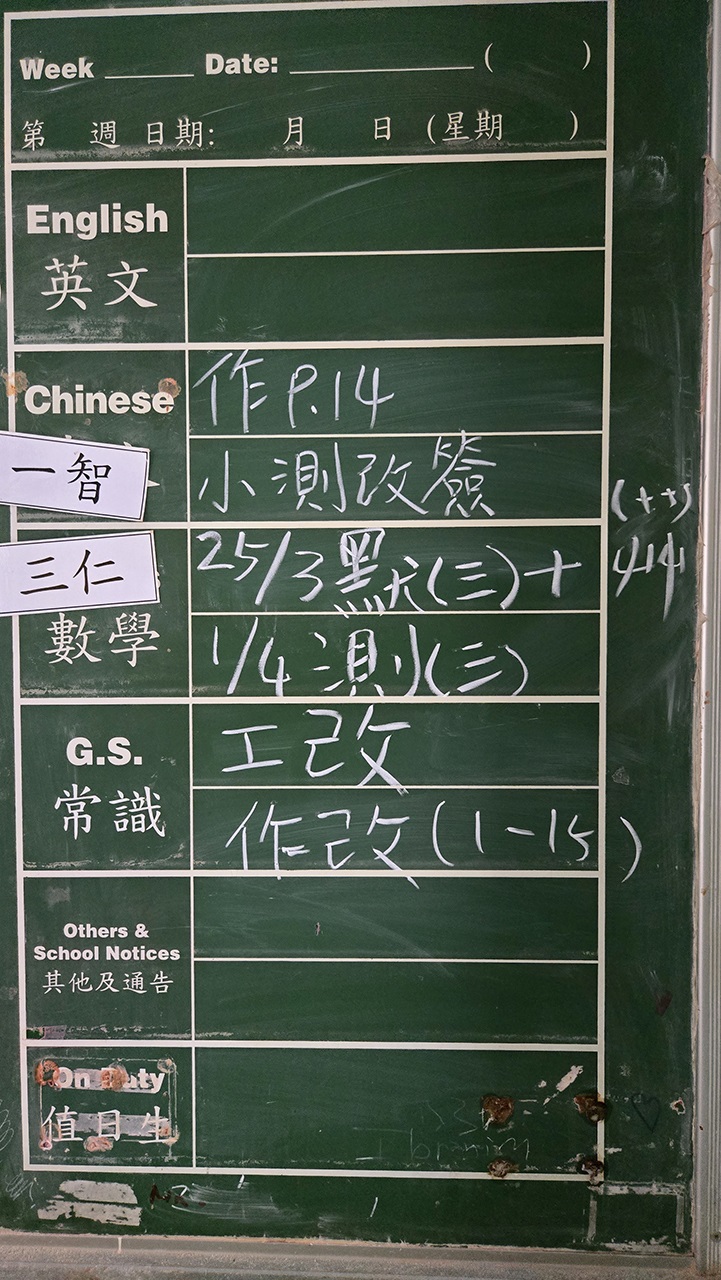 Week ______ Date: ______________ (        )
第 週 日期: 月 日 (星期 )
English
英文
Chinese
作 P.14
一智
小測改簽
三仁
25/3 默(三)+
數學
1/4 測(三)
G.S.
工改
常識
作改(1-15)
Others &
School Notices
其他及通告
On Duty
值日生